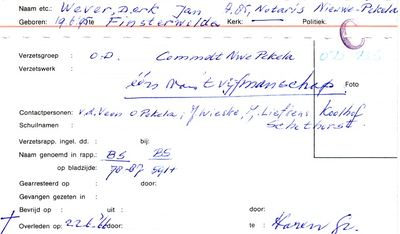 Naam etc.: Wever, Derk Jan 7.85, Notaris Nieuwe-Pekela
Geboren: 19.6. te Finsterwolde Kerk: Politiek.
Verzetsgroep : O.D. Commdt Nwe Pekela
Verzetswerk
één van 't vijfmanschap. Foto
Contactpersonen: v.d. Veen O Pekela; Wieske, Liefkens Koolhof
Schuilnamen :
Verzetsrapp. ingel. dd. : bij:
Naam genoemd in rapp.: BS BS
op bladzijde : 78-87
Gearresteerd op : door:
Gevangen gezeten in :
Bevrijd op : uit : door:
Overleden op : 22.6. door: te : Haren Gr.